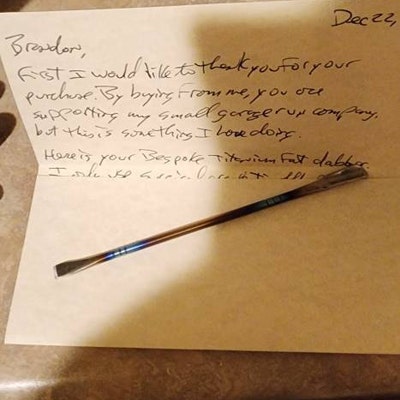 Dec 22,
Brandon,
First I would like to thank you for your
purchase. By buying from me, you are
supporting my small garage run company,
but this is something I love doing.
Here is your Bespoke Titanium Fat dabber.
I